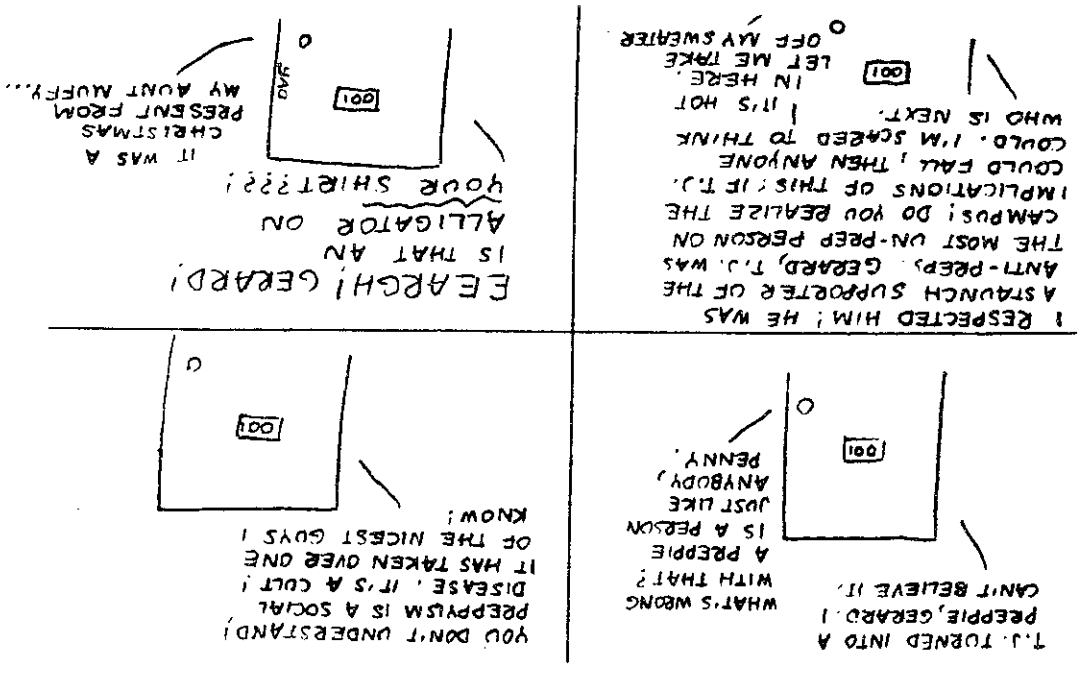 T.J. TURNED INTO A
PREPPIE, GERARD. I
CAN'T BELIEVE IT.
WHAT'S WRONG
WITH THAT?
A PREPPIE
IS A PERSON
JUST LIKE
ANYBODY,
PENNY.
100
YOU DON'T UNDERSTAND!
PREPPYISM IS A SOCIAL
DISEASE. IT'S A CULT!
IT HAS TAKEN OVER ONE
OF THE NICEST GUYS I
KNOW!
100
I RESPECTED HIM! HE WAS
A STAUNCH SUPPORTER OF THE
ANTI-PREPS. GERARD, T.J. WAS
THE MOST UN-PREP PERSON ON
CAMPUS! DO YOU REALIZE THE
IMPLICATIONS OF THIS! IF T.J.
COULD FALL, THEN ANYONE
COULD. I'M SCARED TO THINK
WHO IS NEXT.
IT'S HOT
IN HERE.
LET ME TAKE
OFF MY SWEATER
100
EEARGH! GERARD!
IS THAT AN
ALLIGATOR ON
YOUR SHIRT???!
IT WAS A
CHRISTMAS
PRESENT FROM
MY AUNT MUFFY...
100